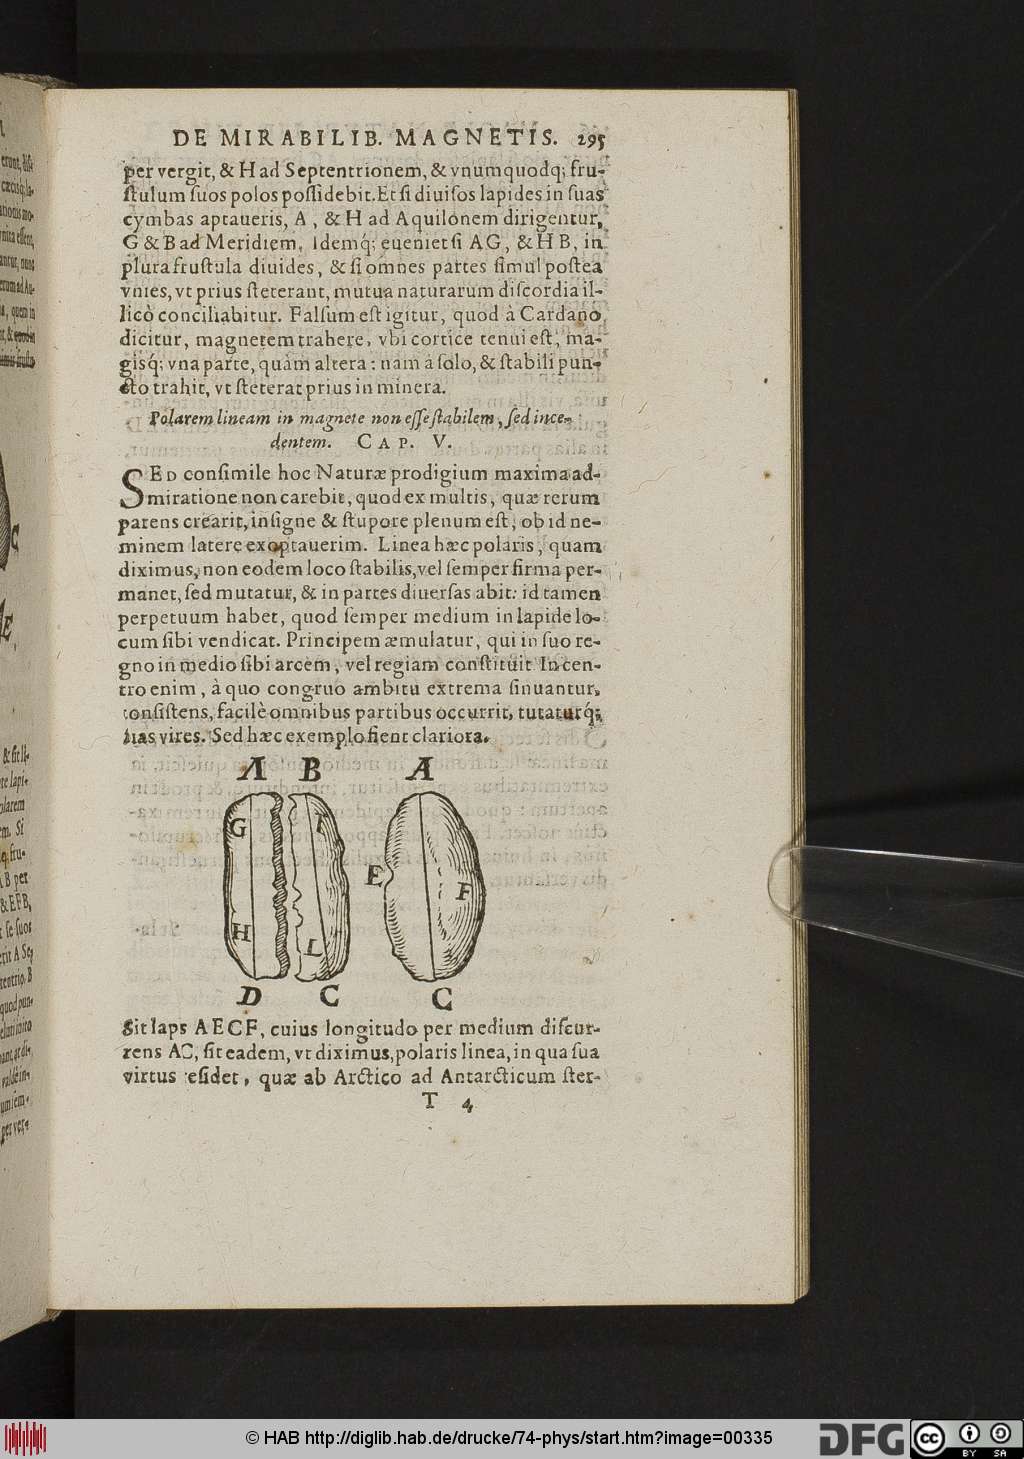 DE MIRABILIB. MAGNETIS. 295
per vergit, & H ad Septentrionem, & vnumquodq; fru-
ſtulum ſuos polos poſſidebit. Et ſi diuiſos lapides in ſuas
cymbas aptaueris, A, & H ad Aquilonem dirigentur,
G & B ad Meridiem, Idemq́; eueniet ſi AG, & HB, in
plura fruſtula diuides, & ſi omnes partes ſimul poſtea
vnies, vt prius ſteterant, mutua naturarum diſcordia il-
licò conciliabitur. Falſum eſt igitur, quod à Cardano
dicitur, magnetem trahere, vbi cortice tenui eſt, ma-
gisq́; vna parte, quàm altera: nam à ſolo, & ſtabili pun-
cto trahit, vt ſteterat prius in minera.
Polarem lineam in magnete non eſſe ſtabilem, ſed ince-
dentem. CAP. V.
SED conſimile hoc Naturæ prodigium maxima ad-
miratione non carebit, quod ex multis, quæ rerum
parens crearit, inſigne & ſtupore plenum eſt, ob id ne-
minem latere exoptauerim. Linea hæc polaris, quam
diximus, non eodem loco ſtabilis, vel ſemper firma per-
manet, ſed mutatur, & in partes diuerſas abit: id tamen
perpetuum habet, quod ſemper medium in lapide lo-
cum ſibi vendicat. Principem æmulatur, qui in ſuo re-
gno in medio ſibi arcem, vel regiam conſtituit In cen-
tro enim, à quo congruo ambitu extrema ſinuantur,
conſiſtens, facilè omnibus partibus occurrit, tutaturq́;
ſuas vires. Sed hæc exemplo fient clariora.
A B A
G I
E F
H L
D C C
Sit laps AECF, cuius longitudo per medium diſcur-
rens AC, ſit eadem, vt diximus, polaris linea, in qua ſua
virtus reſidet, quæ ab Arctico ad Antarcticum ſter-
T 4
© HAB http://diglib.hab.de/drucke/74-phys/start.htm?image=00335
DFG
cc
BY SA